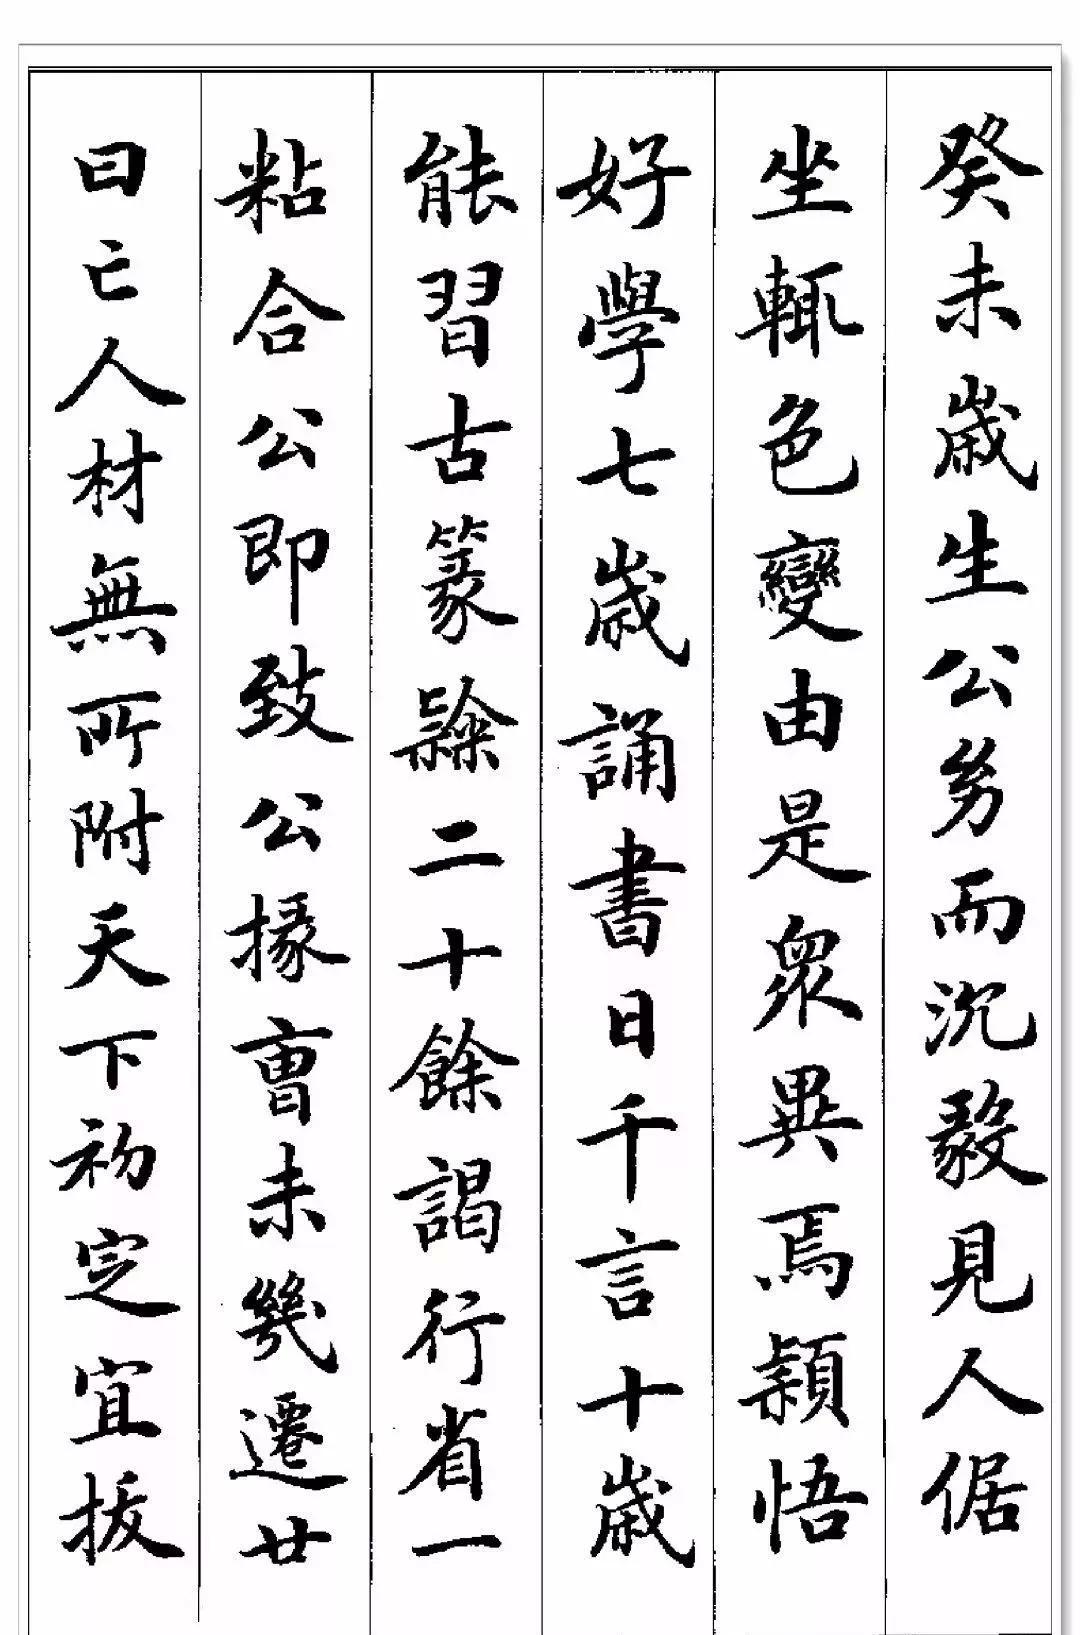 癸未歲生公㓜而沉毅見人倨
坐輙色變由是衆異焉穎悟
好學七歲誦書日千言十歲
能習古篆隷二十餘謁行省一
粘合公即致公掾曺未幾遷廿
曰亡人材無所附天下初定宜拔